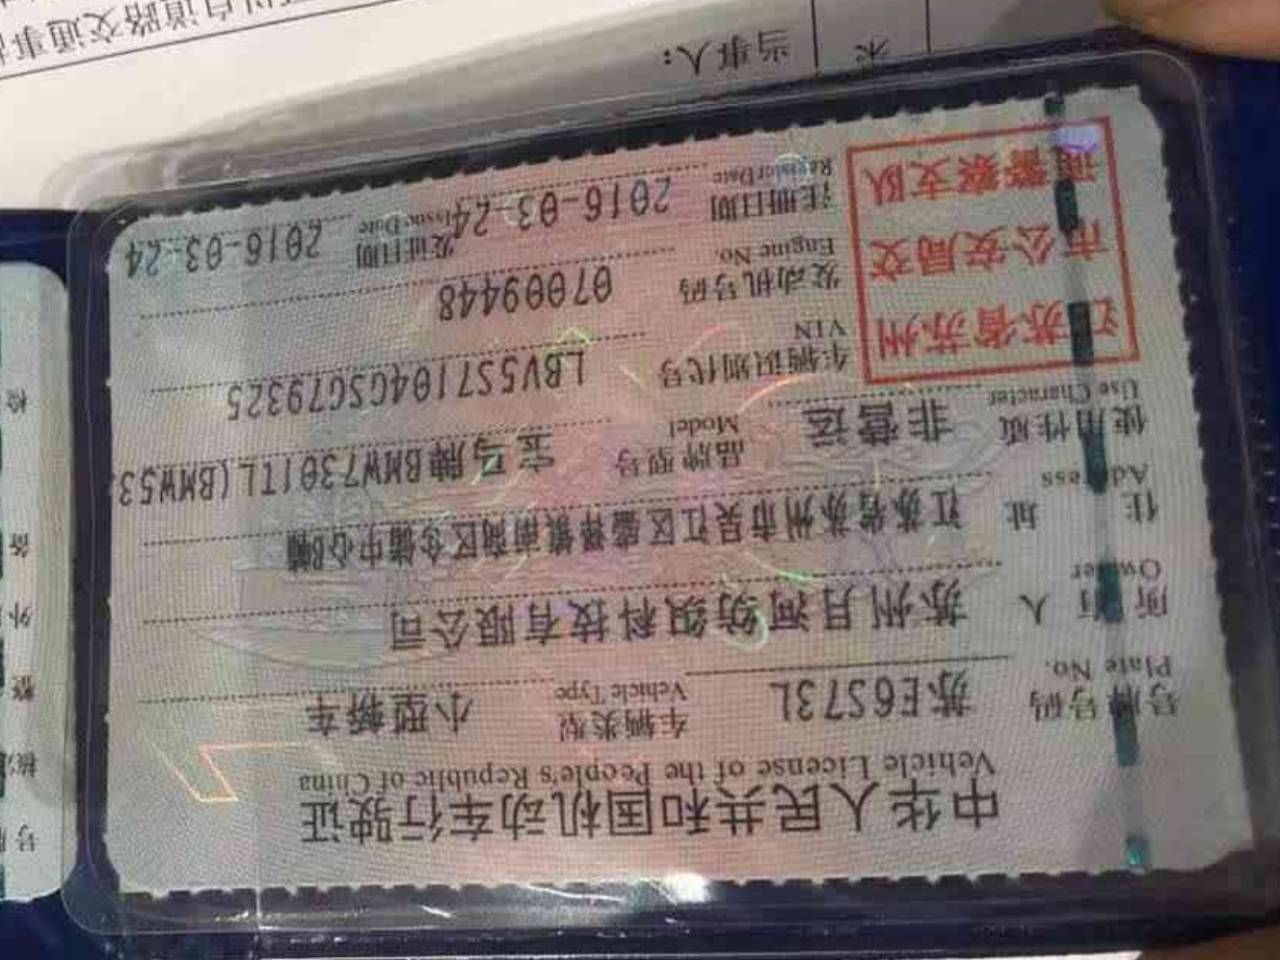 中华人民共和国机动车行驶证
Vehicle License of the People's Republic of China
号牌号码 苏E6S73L 车辆类型 小型轿车
Plate No. Vehicle Type
所有人 苏州月河纺织科技有限公司
Owner
住址 江苏省苏州市吴江区盛泽镇南商区仓储中心B幢
Address
使用性质 非营运 品牌型号 宝马牌BMW7301TL(BMW53
Use Character Model
江苏省苏州
市公安局交
通警察支队
车辆识别代号 LBV5S7104GSG79325
VIN
发动机号码 07009448
Engine No.
注册日期 2016-03-24 发证日期 2016-03-24
Register Date Issue Date
当事人:
号
检
备
外
整
核